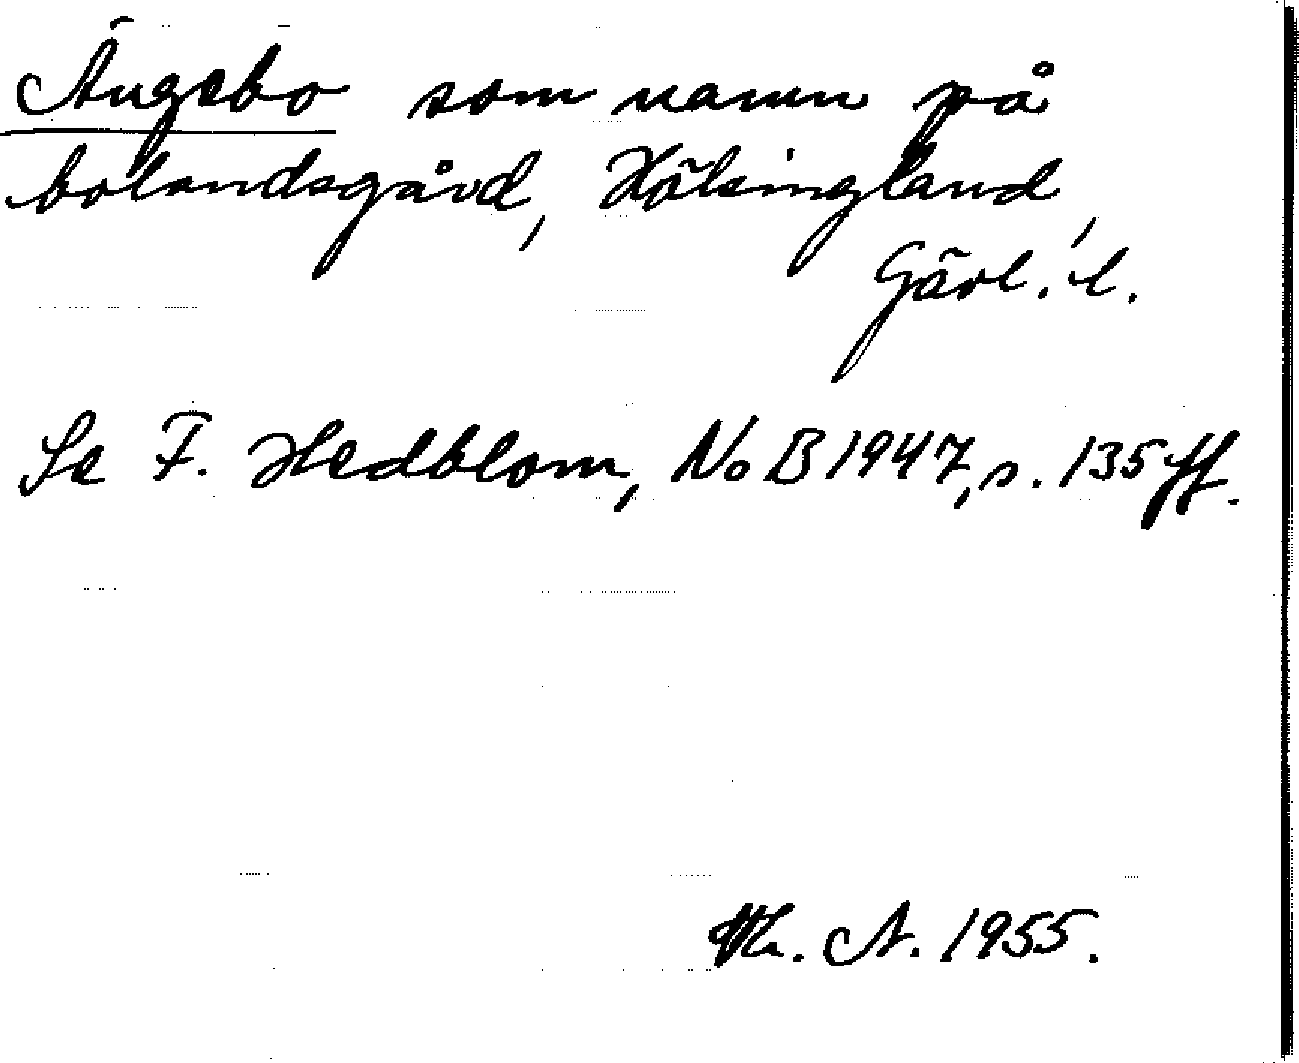 Ängebo som namn på
bolandsgård, Hälsingland,
Gävl. l.
Se F. Hedblom, NoB 1947, s. 135 ff.
A. 1955.